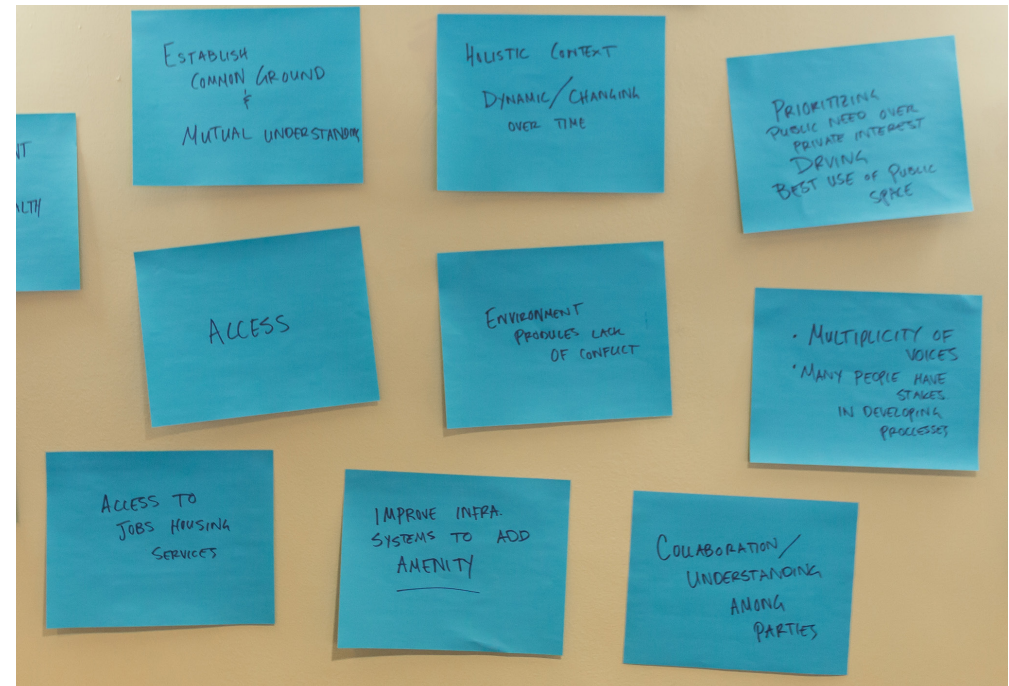 ESTABLISH
COMMON GROUND
&
MUTUAL UNDERSTANDING
HOLISTIC CONTEXT
DYNAMIC/CHANGING
OVER TIME
PRIORITIZING
PUBLIC NEED OVER
PRIVATE INTEREST
DRVING
BEST USE OF PUBLIC
SPACE
NT
ALTH
ACCESS
ENVIRONMENT
PRODUCES LACK
OF CONFLICT
• MULTIPLICITY OF
VOICES
• MANY PEOPLE HAVE
STAKES
IN DEVELOPING
PROCESSES
ACCESS TO
JOBS HOUSING
SERVICES
IMPROVE INFRA.
SYSTEMS TO ADD
AMENITY
COLLABORATION/
UNDERSTANDING
AMONG
PARTIES